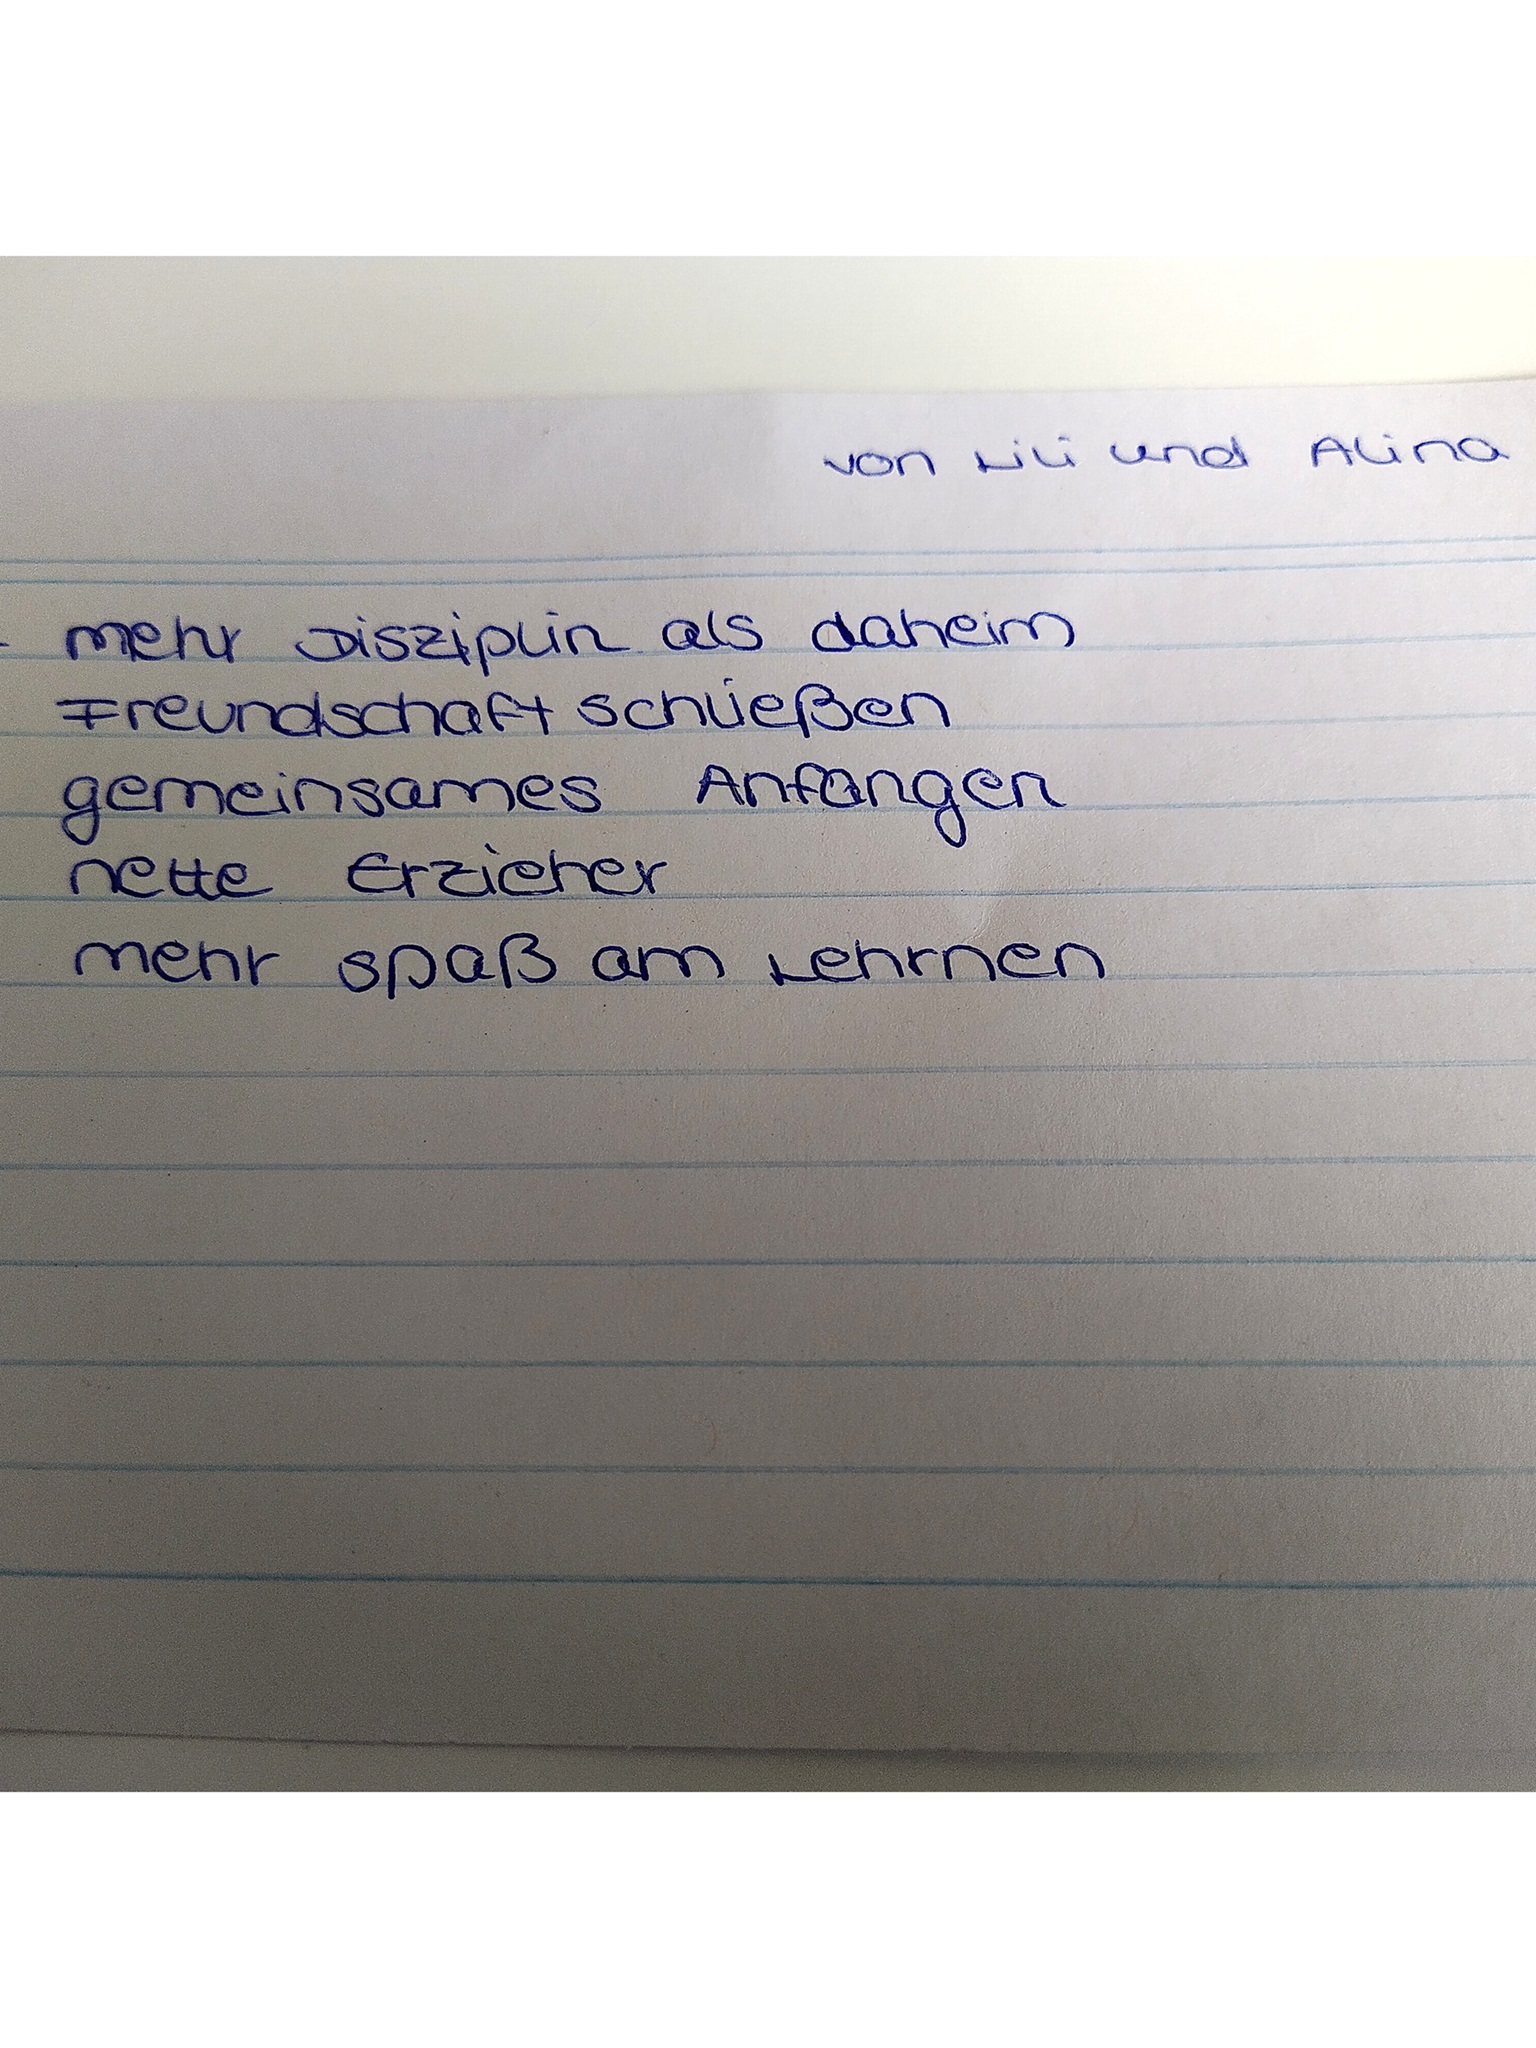 von Lili und Alina
- mehr Disziplin als daheim
Freundschaft schließen
gemeinsames Anfangen
nette Erzieher
mehr spaß am Lehrnen